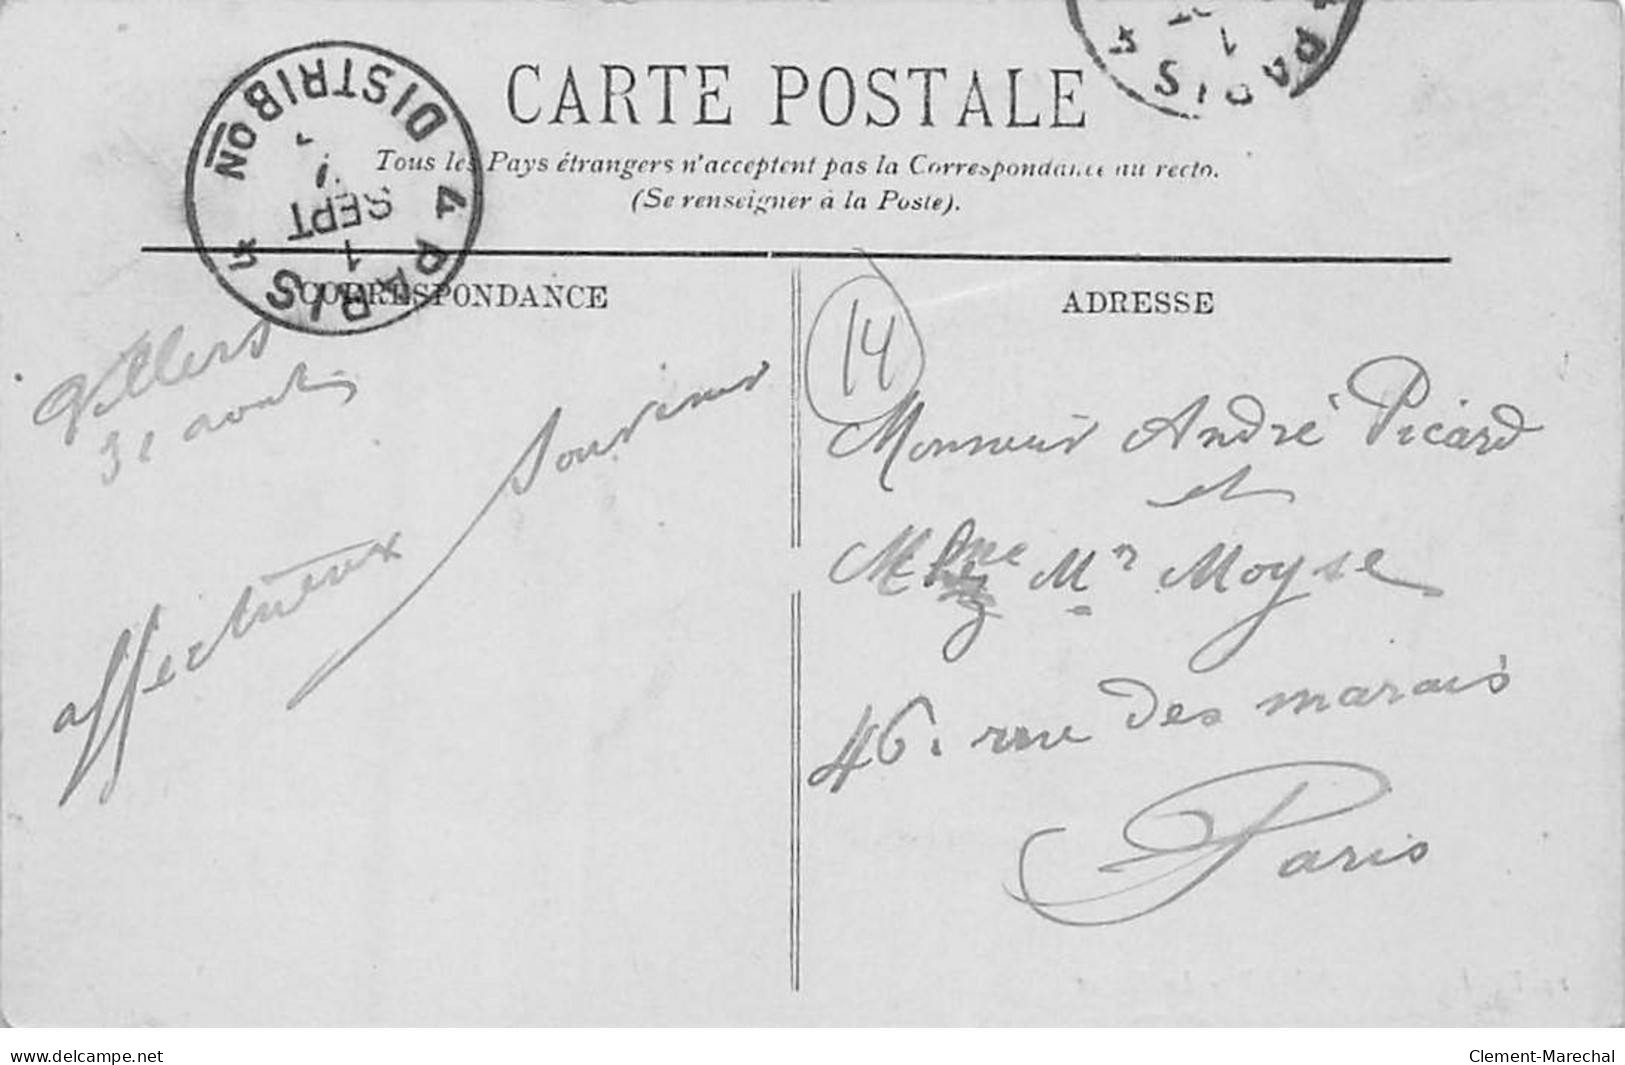 CARTE POSTALE
Tous les Pays étrangers n'acceptent pas la Correspondance au recto.
(Se renseigner à la Poste).
PARIS 4 DISTRIBON
1
SEPT
PARIS
CORRESPONDANCE
ADRESSE
Villers
31 août
affectueux souvenir
14
Monsieur André Picard
et
Mr Moyse
46. rue des marais
Paris
www.delcampe.net
Clement-Marechal